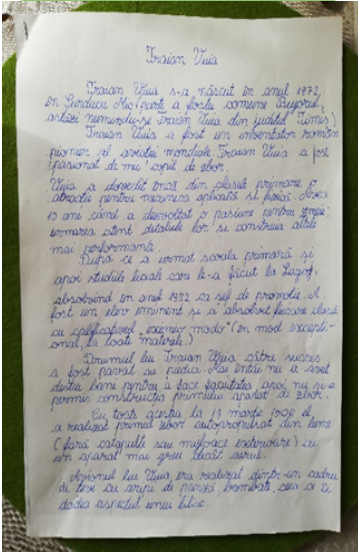 Traian Vuia
Traian Vuia s-a născut în anul 1972,
în Surducu Mic (parte a fostei comune Bujorul,
astăzi numindu-se Traian Vuia din județul Timiș)
Traian Vuia a fost un inventator român
pionier al aviației mondiale. Traian Vuia a fost
pasionat de mic copil de zbor.
Vuia a dovedit încă din clasele primare o
atracție pentru mecanica aplicată și fizică. Avea
10 ani când a dezvoltat o pasiune pentru zmeie
urmarea atent detaliile lor și construia altele
mai performante.
După ce a urmat scoala primară și
apoi studiile liceale care le-a făcut la Lugoj,
absolvind en anul 1892 ca șef de promoție. A
fost un elev eminent si a absolvit fiecare clasă
cu calificativul "eximio modo" (în mod excepti-
onal, la toate materiile.)
Drumul lui Traian Vuia către succes
a fost parval cu piedici. Mai întâi nu a avut
destui bani pentru a face facultatea, apoi nu și-a
permis constructia primului aparat de zbor.
Cu toate acestea la 18 martie 1906 el
a realizat primul zbor autopropulsat din lume
(fără catapulte sau mijloace exterioare) cu
un aparat mai greu decât aerul.
Avionul lui Vuia era realizat dintr-un cadru
de țevi cu aripi de pânză, bombată, ceea ce îi
dădea aspectul unui liliac.